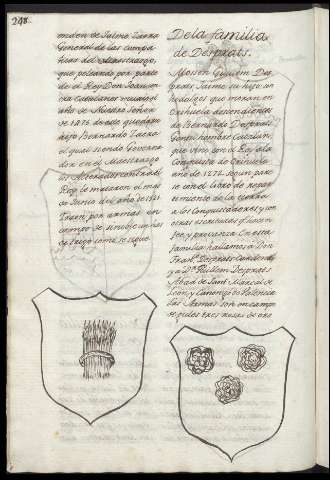 248.
onden de Jaime Zarro
General de las compa-
ñias del Maestrazgo,
que peleando por parte
de el Rey Don Juan con
tra Catalanes murio el
año de Nuestro Señor
de 1272 de este quedo su
hijo Bernardo Zarro
el qual siendo Governa
dor en el Maestrazgo
los Alterados contra el
Rey, le mataron el mes
de Junio del año de 1521
Traen por armas en
campo de
de trigo como se sigue.
De la familia
de Desprats.
Mosen Guillem Des-
prats Jaime su hijo, son
hidalgos que moran en
Orihuela descendientes
de Bernardo Desprats
Gentil hombre Catalan,
que vino con el Rey a la
Conquista de Orihuela
año de 1272. segun pare
se con el libro de repar
timiento de la tierra
a los Conquistadores y con
otras escrituras q hacen
fee, y provanza. En esta
familia hallamos a Don
Desprats Cardenal
y a Dn Guillem Desprats
Abad de Sant Marcel de
Leon, y Canonigo de Valencia
Las Armas son en campo
de gules tres rosas de oro